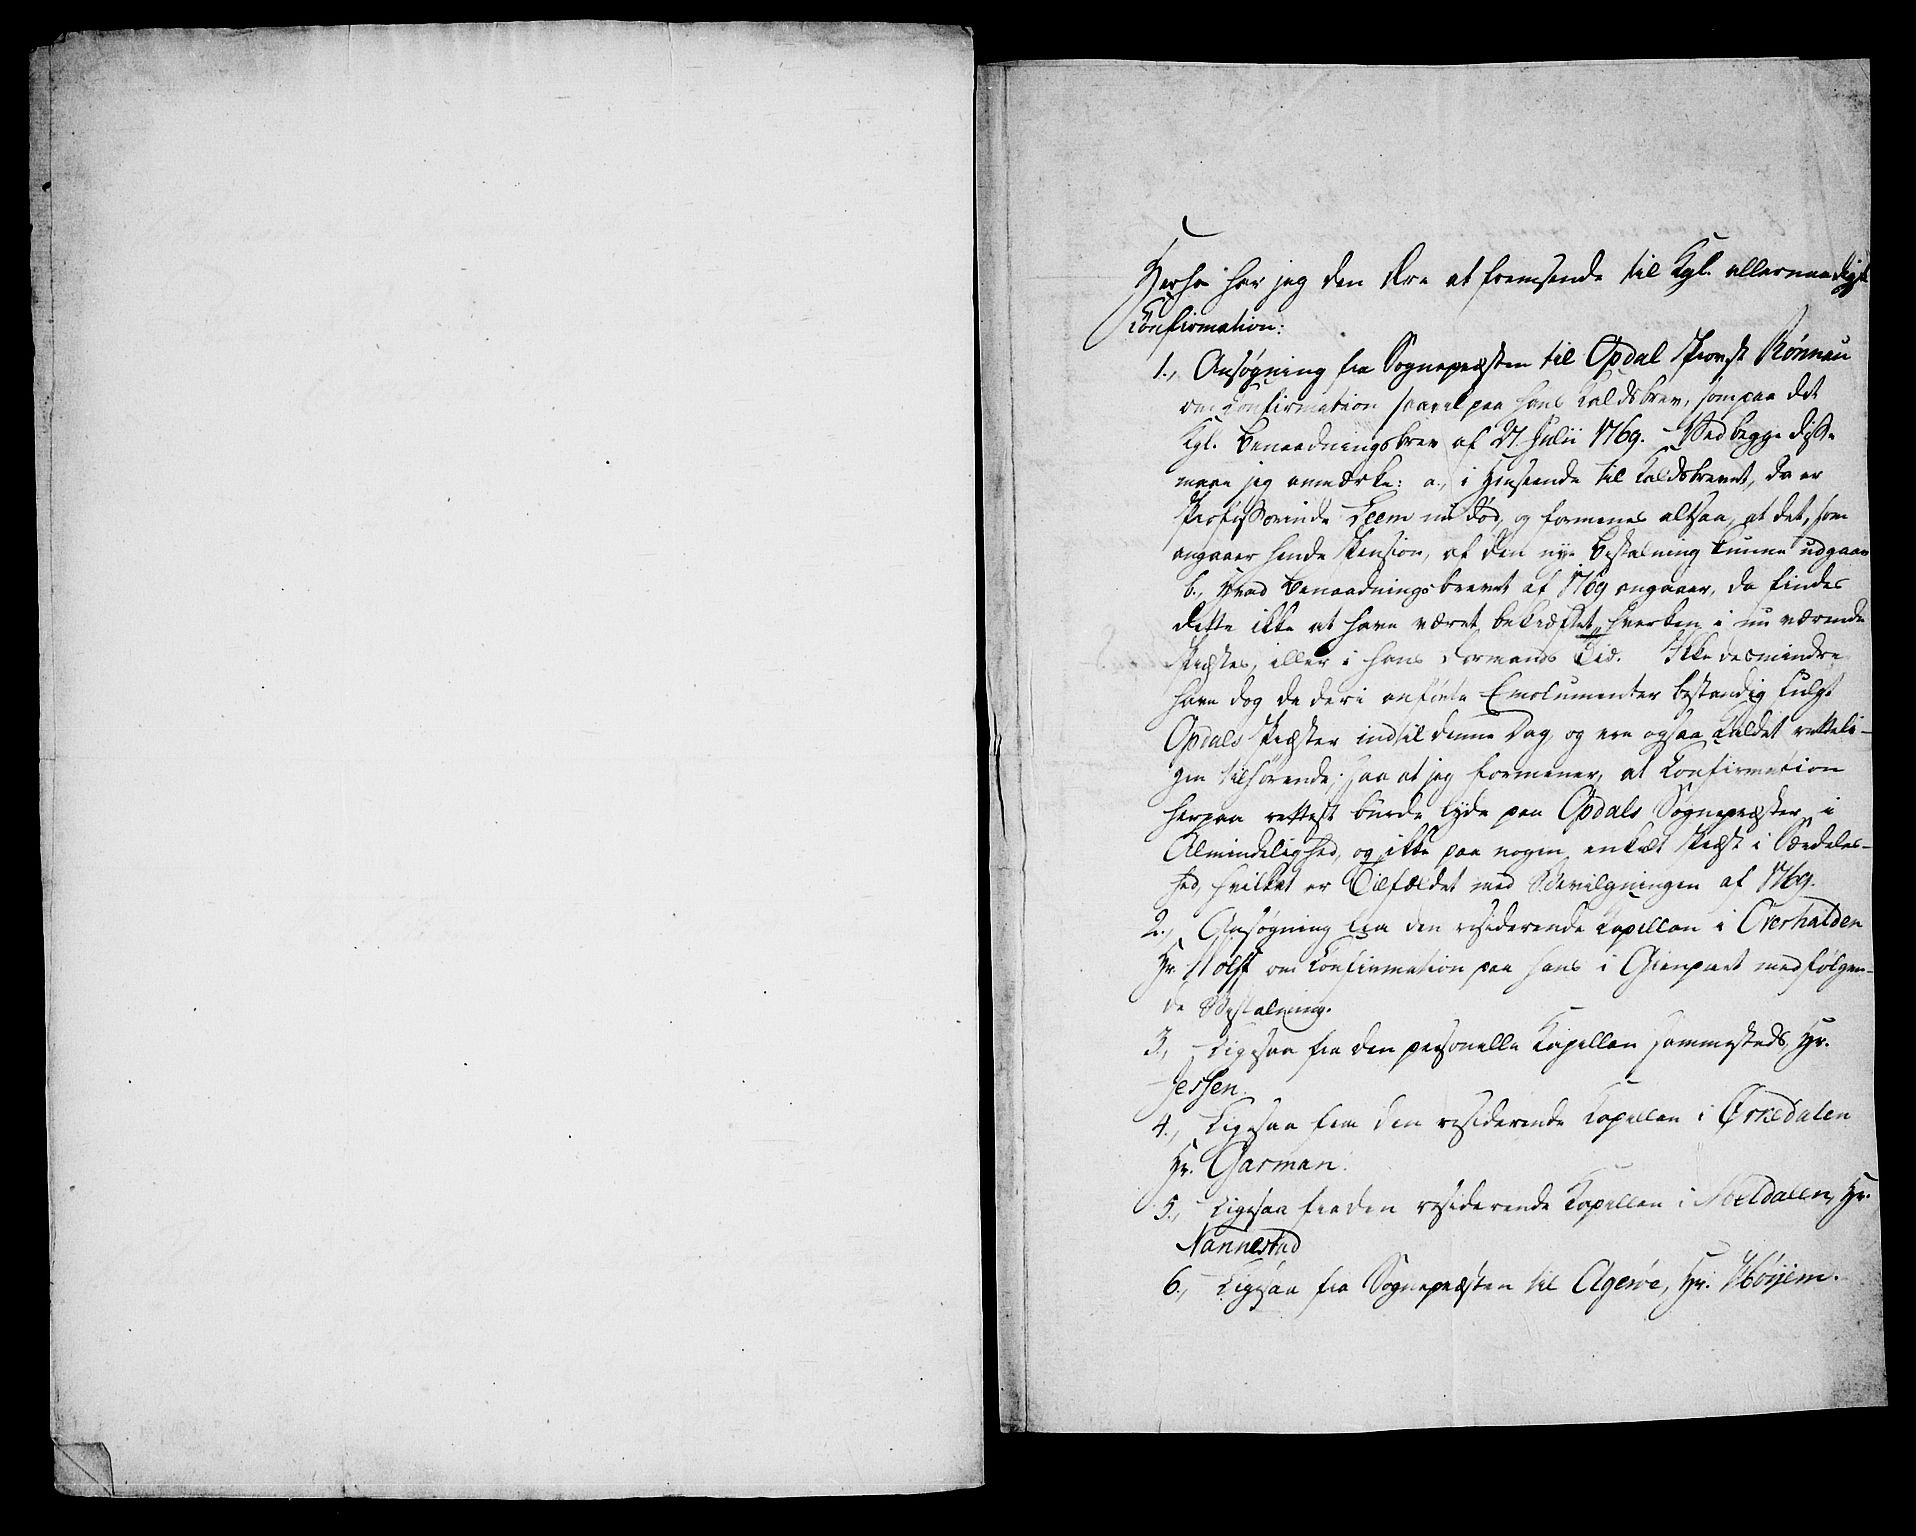 Herhos har jeg den Ære at fremsende til Kgl. allernaadigst
Confirmation:
1., Ansøgning fra Sognepræsten til Opdal Provst Rønnau
om Confirmation saavel paa hans Kaldsbrev, som paa det
Kgl. Benaadningsbrev af 27 Julii 1769. Ved begge disse
maae jeg anmærke: a., i Henseende til Kaldsbrevet, da er
Professorinde Leem nu død, og formenes altsaa, at det, som
angaaer hende Pension, af den nye Bestalning kunne udgaae
b., Hvad Benaadningsbrevet af 1769 angaaer, da findes
dette ikke at have været bekræftet, hverken i nu værende
Præstes, eller i hans Formands Tid. Ikke desmindre
have dog de deri anførte Emolumenter bestandig fulgt
Opdals Præster indtil denne Dag, og ere ogsaa Kaldet retteli-
gen tilhørende; saa at jeg formener, at Confirmation
herpaa rettest burde lyde paa Opdals Sognepræster i
Almindelighed, og ikke paa nogen enkelt Præst i Særdeles-
hed, hvilket er Tilfældet med Bevilgningen af 1769.
2., Ansøgning fra den residerende Kapellan i Overhalden
Hr. Wolff om Confirmation paa hans i Gienpart medfølgen-
de Bestalning.
3., Ligesaa fra den personelle Kapellan sammesteds, Hr.
Jessen.
4., Ligesaa fra den residerende Kapellan i Ørkedalen
Hr. Garman.
5., Ligesaa fra den residerende Kapellan i Meldalen, Hr.
Nannestad
6., Ligesaa fra Sognepræsten til Agerøe, Hr. Høyem.